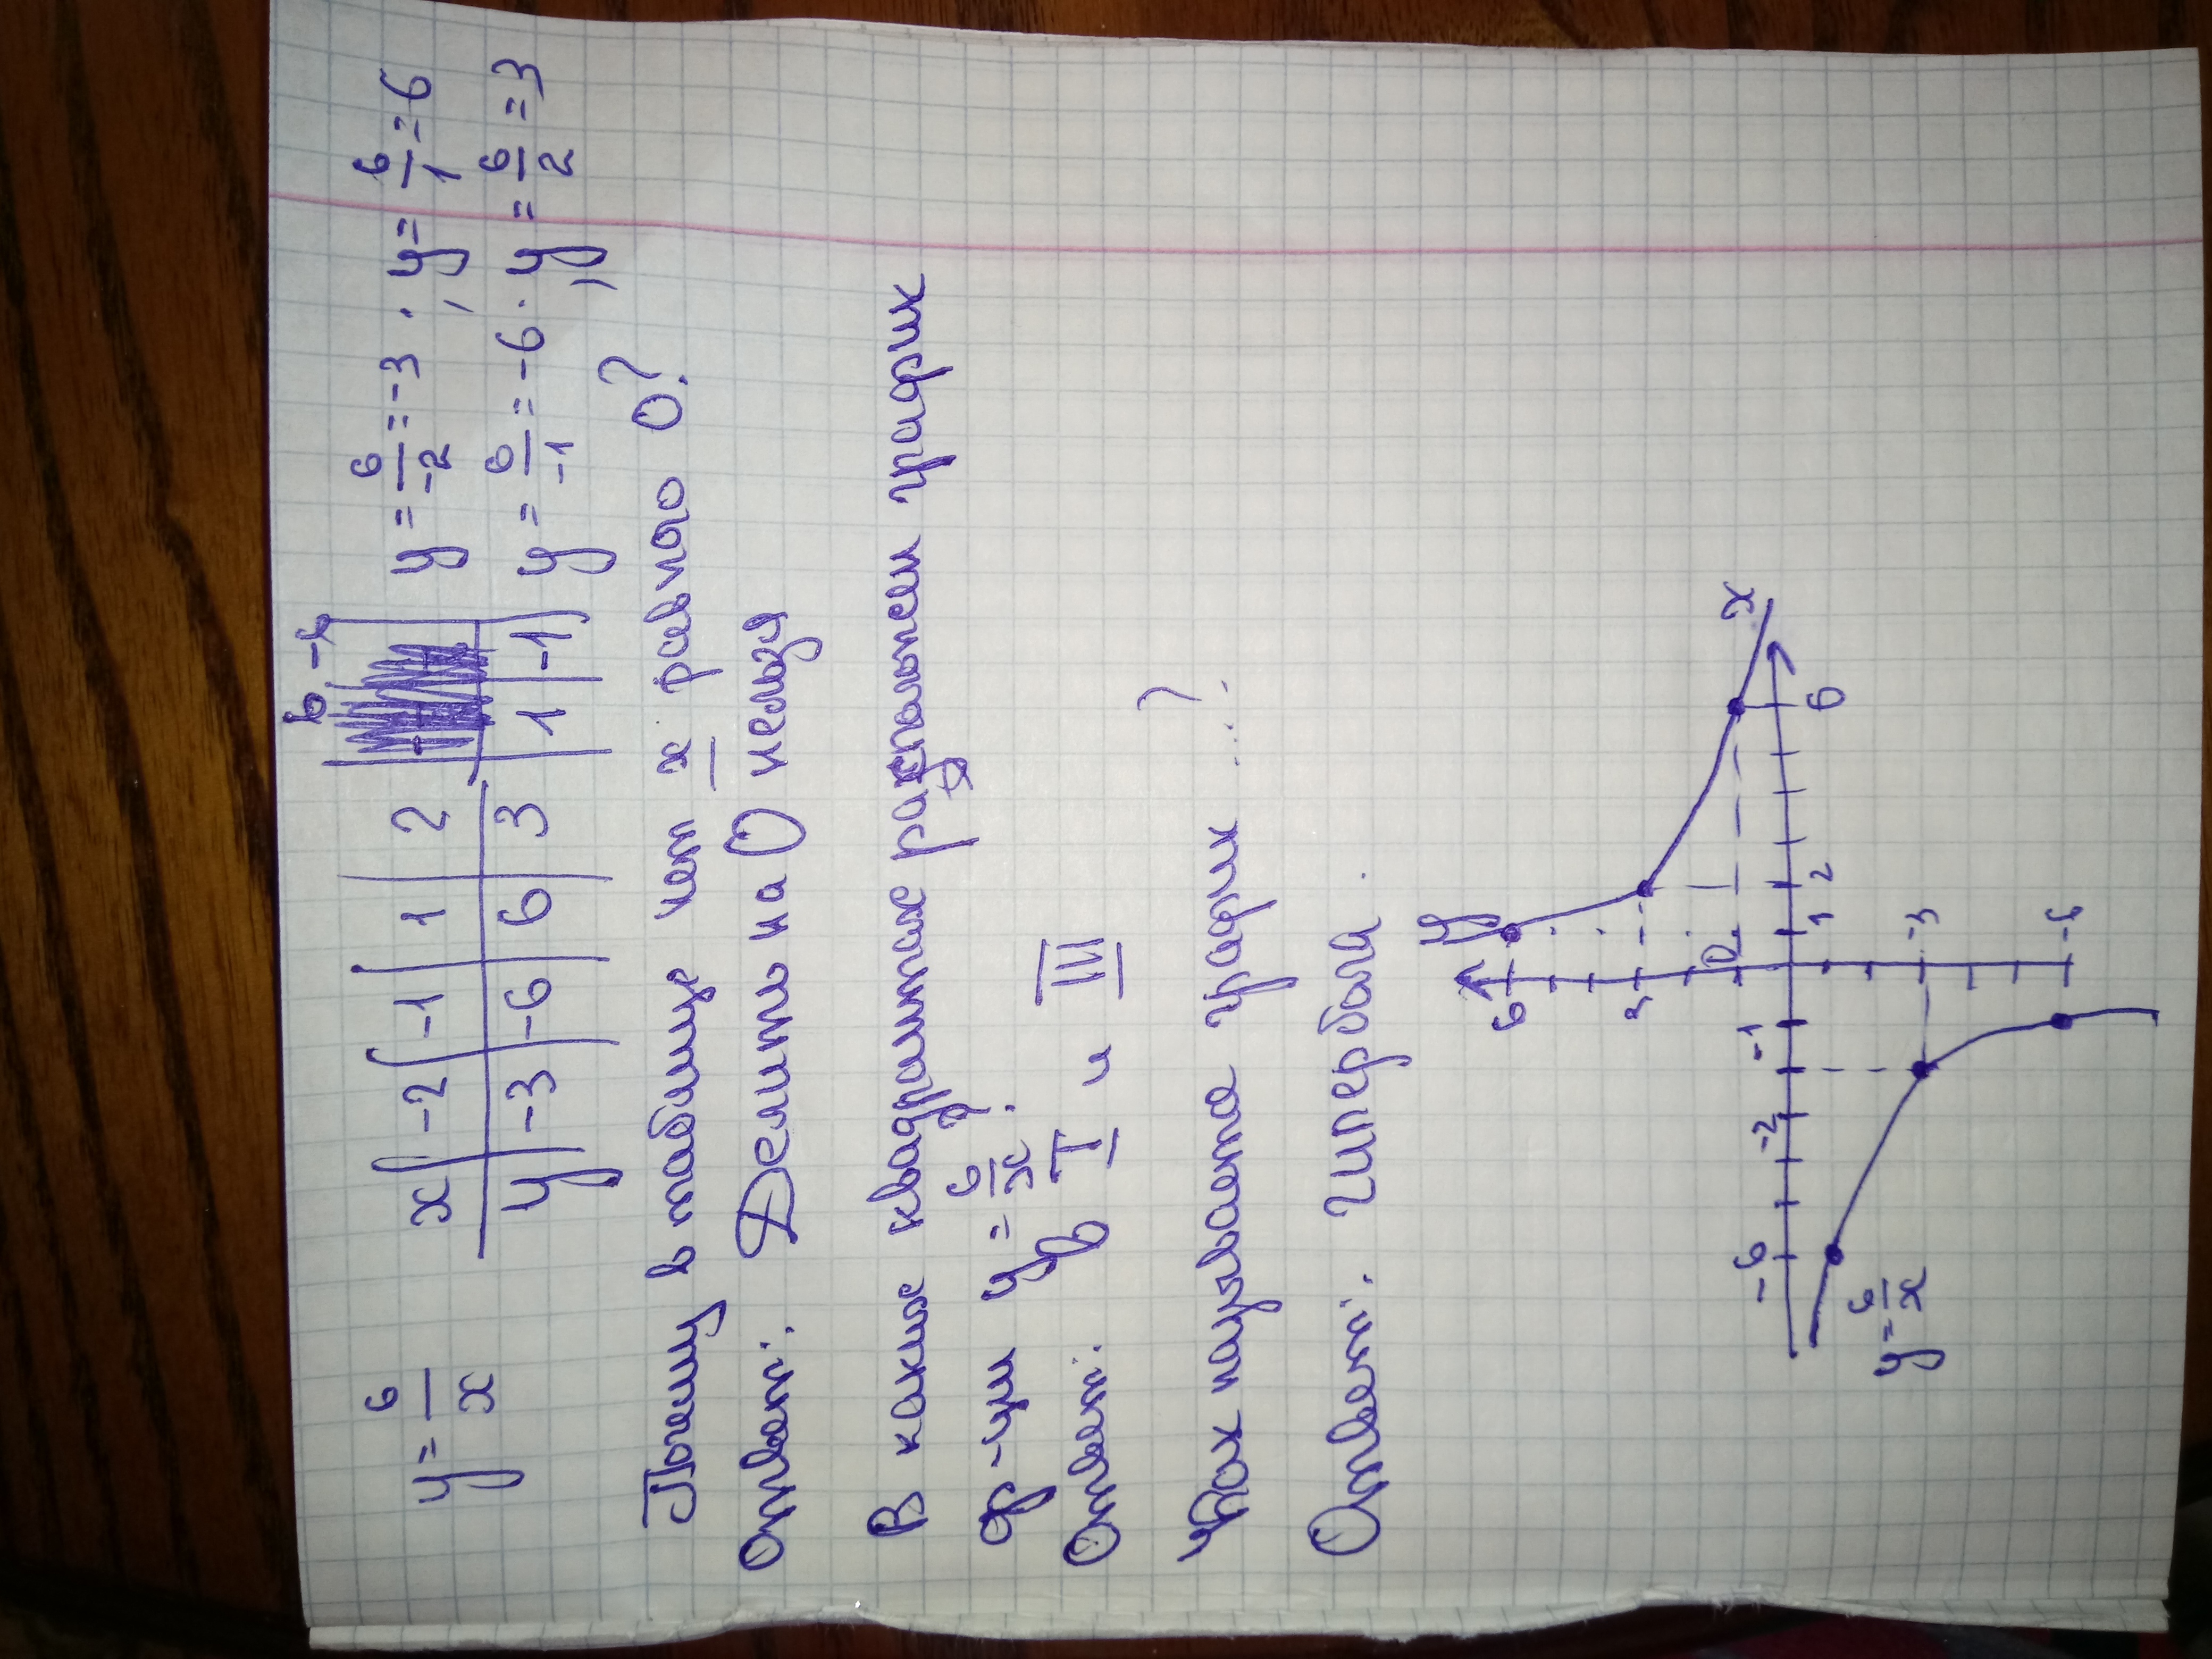 y = 6/x   x | -2 | -1 | 1 | 2 | 6 | -6   y = 6/-2 = -3 , y = 6/1 = 6
y | -3 | -6 | 6 | 3 | 1 | -1   y = 6/-1 = -6 , y = 6/2 = 3
Почему в таблице нет x равного 0?
Ответ: Делить на 0 нельзя
В каких квадрантах расположен график
ф-ции y = 6/x ?
Ответ: в I и III
Как называется график ...?
Ответ: гипербола.
y
6
3
1
-6 -2 -1 0 1 2 6 x
-3
-6
y = 6/x